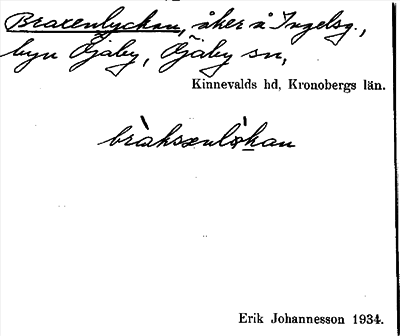 Braxenlyckan, åker å Ingelsg.,
byn Öjaby, Öjaby sn,
Kinnevalds hd, Kronobergs län.
bràksənlỳkan
Erik Johannesson 1934.